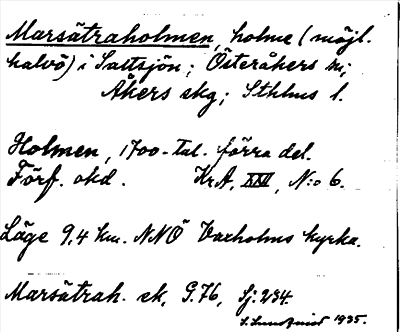 Marsätraholmen, holme (möjl.
halvö) i Saltsjön; Österåkers sn;
Åkers skg; Sthlms l.
Holmen, 1700-tal. förra del.
Förf. okd. KrA, XXII, N:o 6.
Läge 9,4 km. NNÖ Vaxholms kyrka.
Marsätrah. sk, G.76, Sj. 234.
1935.